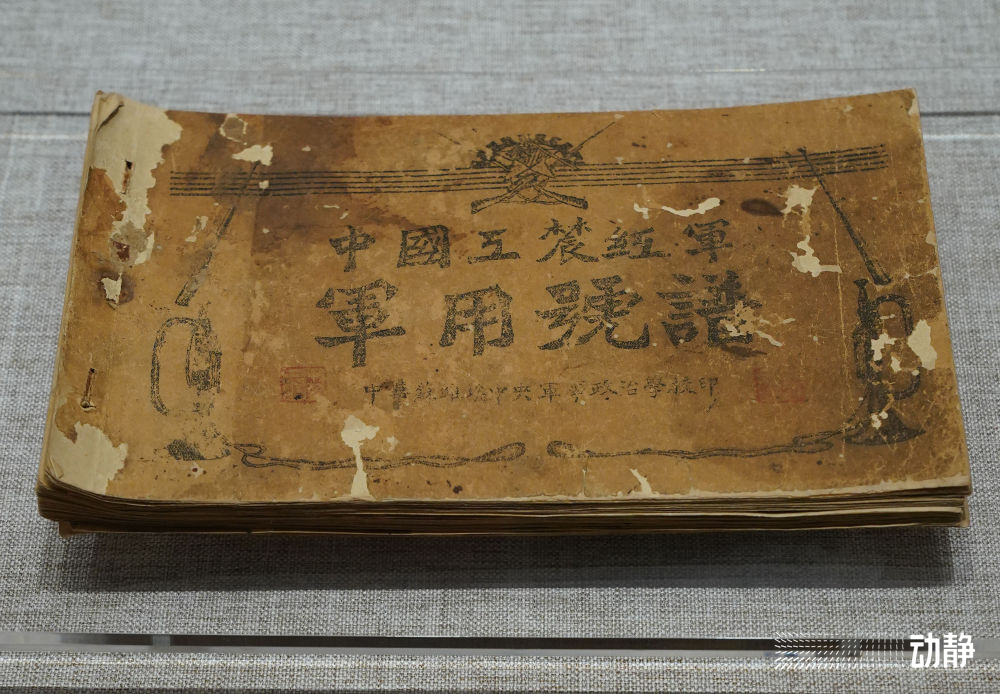 中國工農紅軍
軍用號譜
中華蘇維埃中央軍事政治學校印
动静